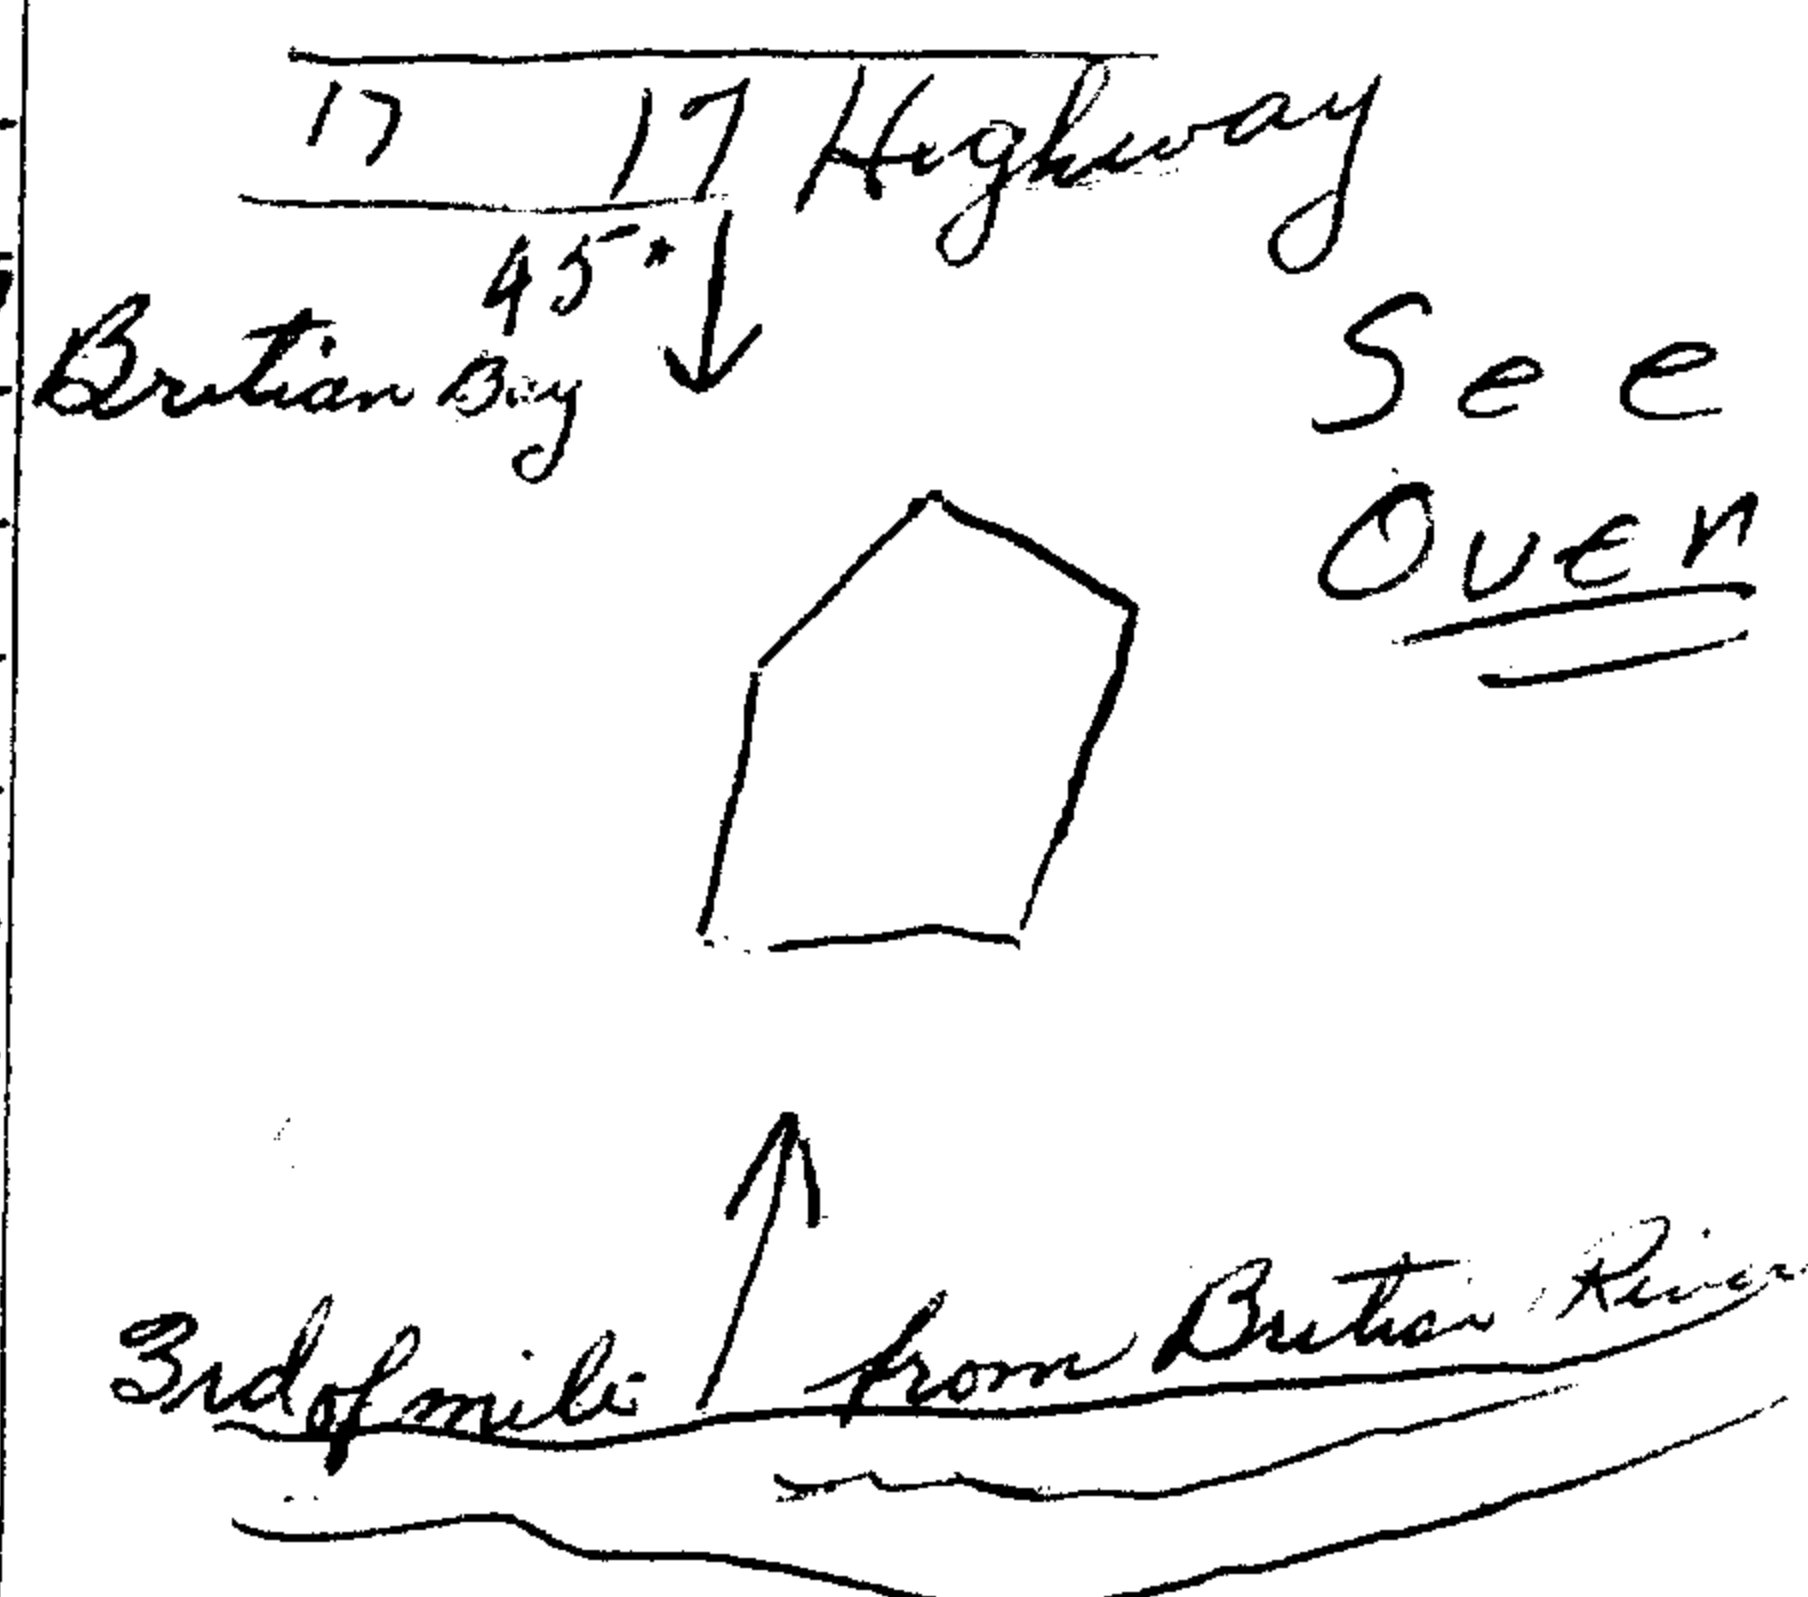 17 17 Highway
45'
Britian Bay
See
Over
3rd of mile from Britian River